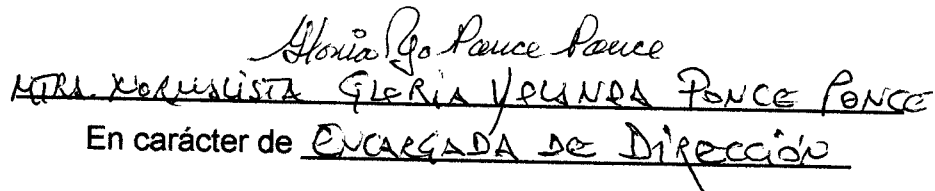 Gloria Yo Ponce Ponce
MTRA. NORMALISTA GLORIA YOLANDA PONCE PONCE
En carácter de ENCARGADA DE DIRECCIÓN